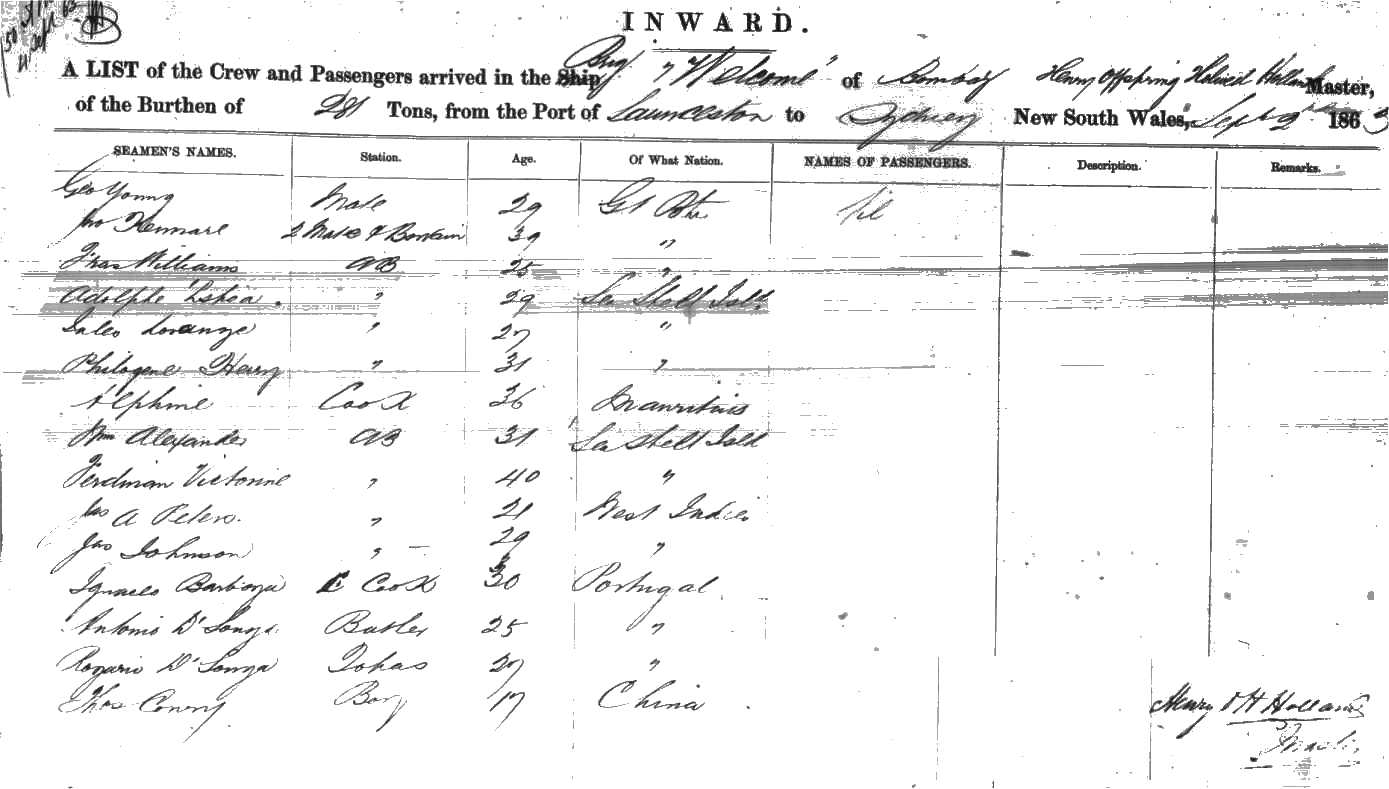 INWARD.
A LIST of the Crew and Passengers arrived in the Ship Brig "Welcome" of Bombay Henry Offspring Holland Master,
of the Burthen of 281 Tons, from the Port of Launceston to Sydney New South Wales, Sept 2 1863
SEAMEN'S NAMES. Station. Age. Of What Nation. NAMES OF PASSENGERS. Description. Remarks.
Geo Young Mate 29 Gt Btn Nil
Jno Kennare 2 Mate & 39 "
Thos Williams AB 25 "
Adolphe . " 29 Sea Shell Isld
" 27 "
Philogene Henry " 31 "
Alphine Cook 36 Mauritius
Wm Alexander AB 31 Sea Shell Isld
Ferdinan Victorine " 40 "
Jas A Peters. " 21 West Indies
Jas Johnson " 29 "
Ignacio Cook 30 Portugal
Antonio D'Souza Butler 25 "
Rozario D'Souza 27 "
Thos Conry Boy 17 China
Henry O H Holland
Master